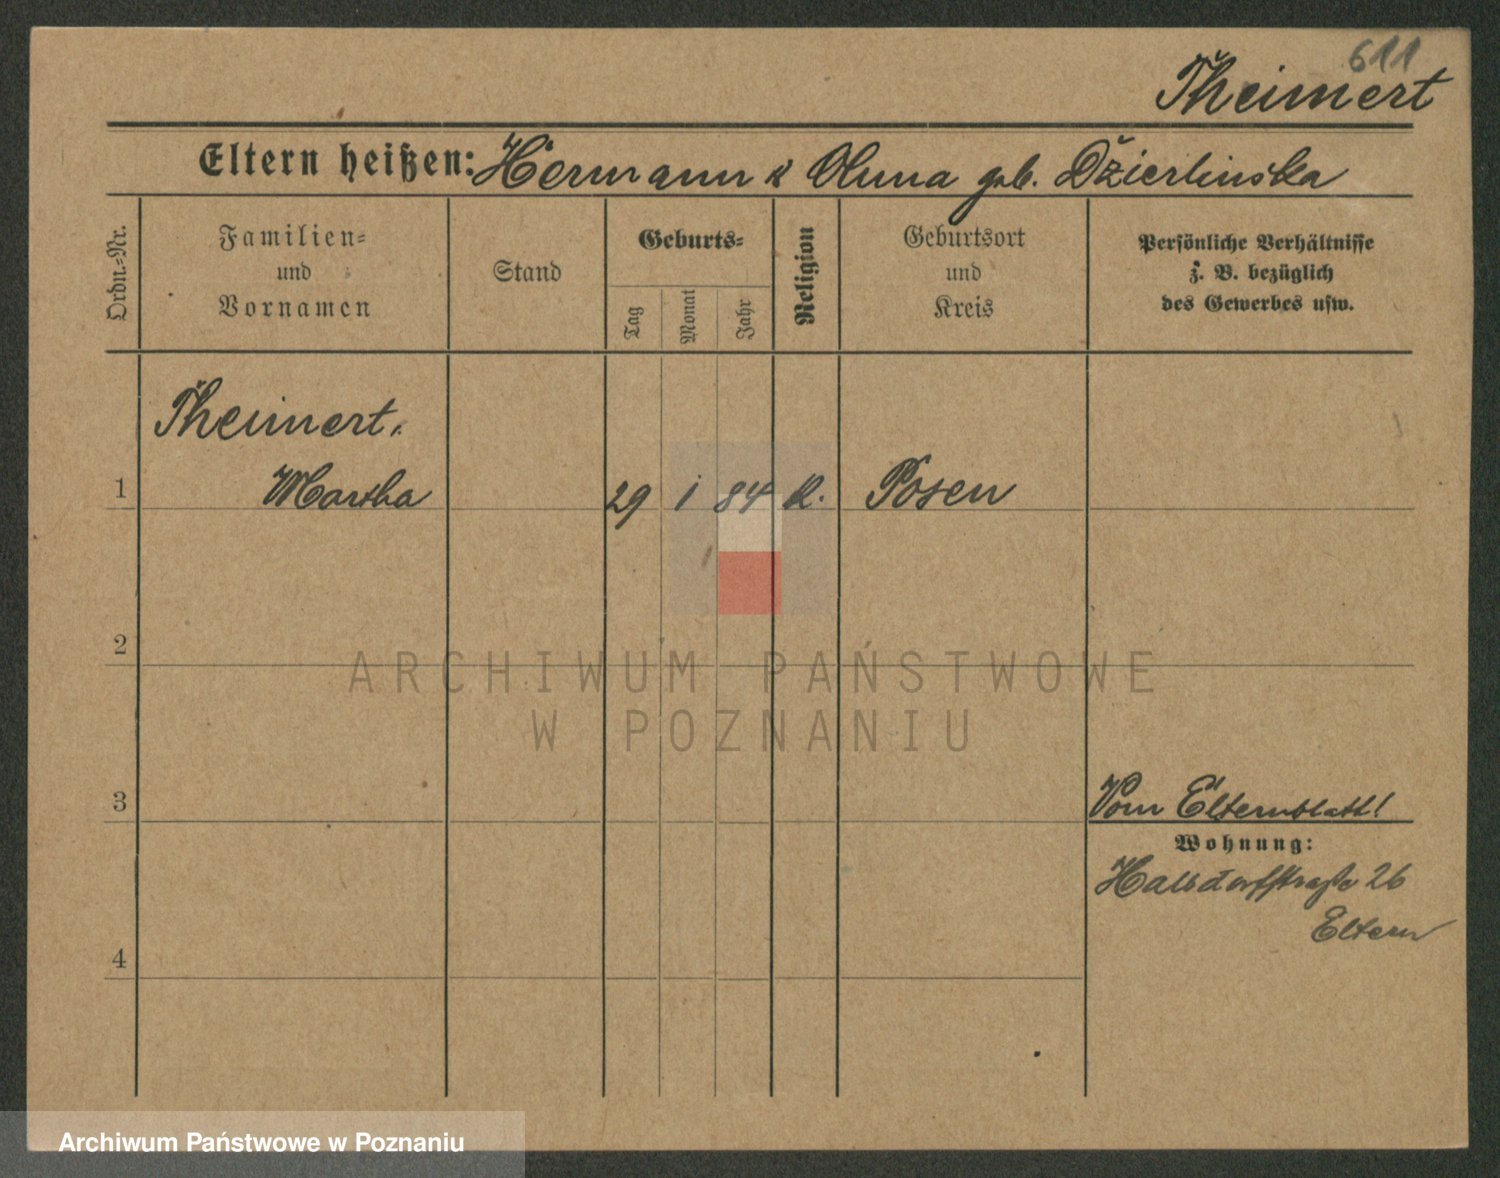 611
Theinert
Eltern heißen: Hermann u Anna geb. Dzierlinska
Ordn.-Nr.
Familien-
und
Vornamen
Stand
Geburts-
Tag
Monat
Jahr
Religion
Geburtsort
und
Kreis
Persönliche Verhältnisse
z. B. bezüglich
des Gewerbes usw.
Theinert,
1 Martha 29 1 84 k. Posen
2
ARCHIWUM PAŃSTWOWE
W POZNANIU
3 Vom Elternblatt!
Wohnung:
Halbdorfstraße 26
Eltern
4
Archiwum Państwowe w Poznaniu